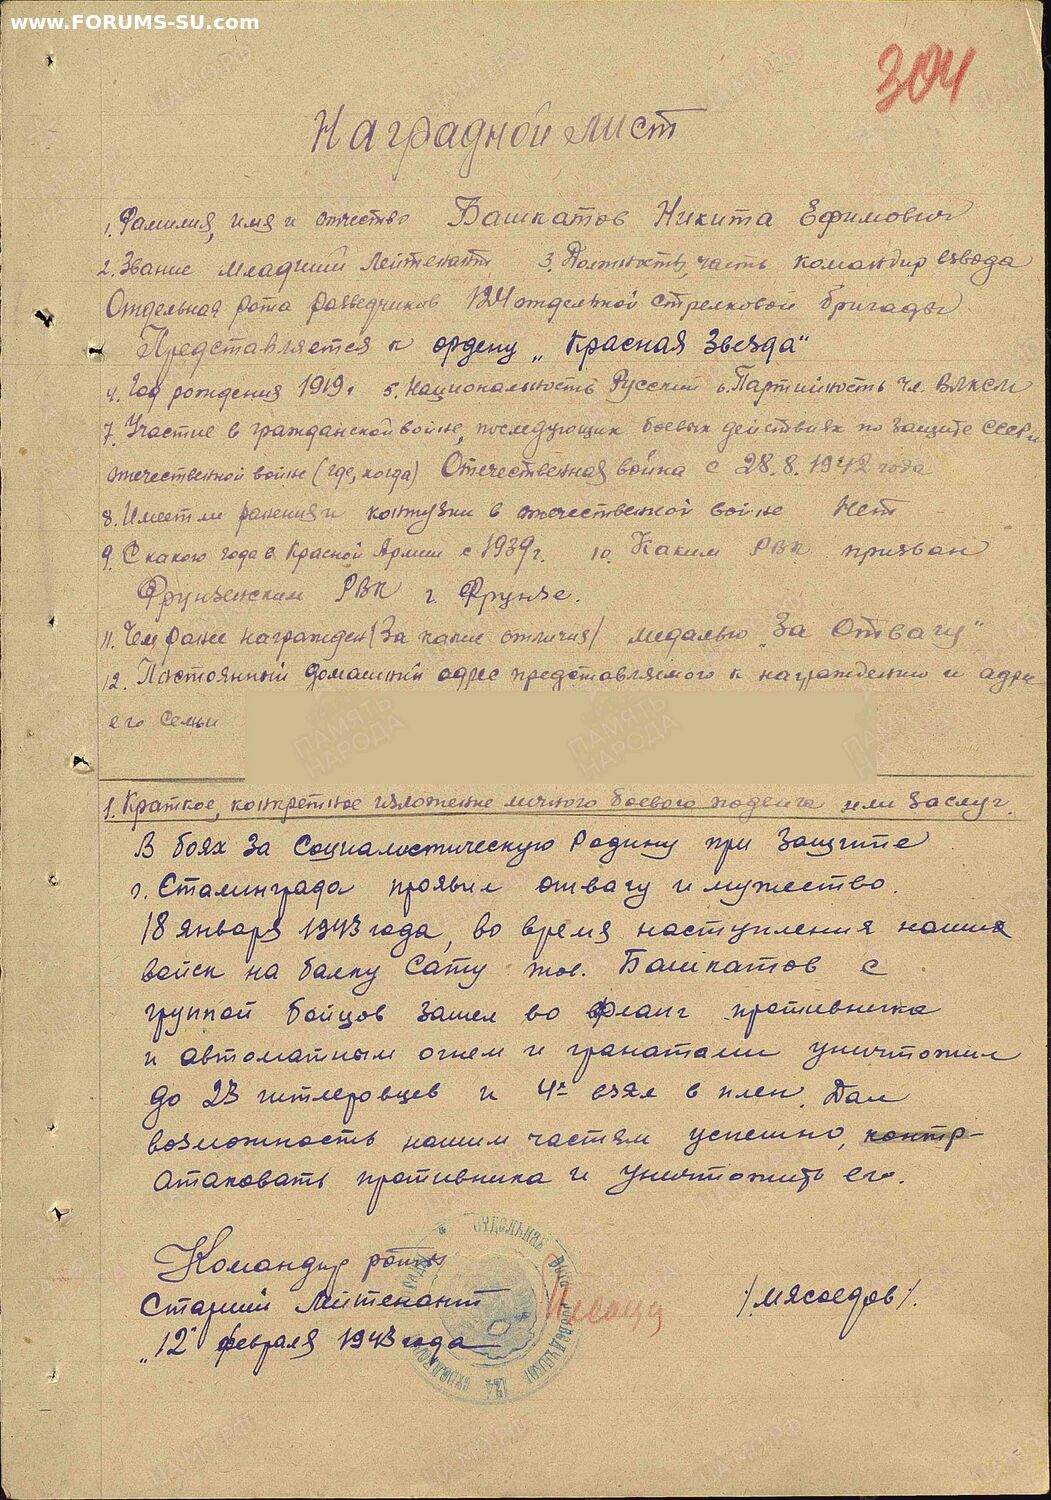 www.FORUMS-SU.com
304
Наградной лист
1. Фамилия, имя и отчество Башкатов Никита Ефимович
2. Звание младший лейтенант 3. Должность, часть командир взвода
Отдельная рота разведчиков 124 отдельной стрелковой бригады
Представляется к ордену „Красная Звезда"
4. Год рождения 1919 г 5. Национальность Русский 6. Партийность чл. ВЛКСМ
7. Участие в гражданской войне, последующих боевых действиях по защите СССР и
отечественной войне (где, когда) Отечественная война с 28.8.1942 года
8. Имеет ли ранения и контузии в отечественной войне Нет
9. С какого года в Красной Армии с 1939 г. 10. Каким РВК призван
Фрунзенским РВК г. Фрунзе.
11. Чем ранее награжден /За какие отличия/ медалью „За Отвагу"
12. Постоянный домашний адрес представляемого к награждению и адрес
его семьи
ПАМЯТЬ НАРОДА
1. Краткое, конкретное изложение личного боевого подвига или заслуг.
В боях за Социалистическую Родину при защите
г. Сталинграда проявил отвагу и мужество.
18 января 1943 года, во время наступления наших
войск на балку Сату тов. Башкатов с
группой бойцов зашел во фланг противника
и автоматным огнем и гранатами уничтожил
до 23 гитлеровцев и 4х взял в плен. Дал
возможность нашим частям успешно, контр-
атаковать противника и уничтожить его.
Командир роты
Старший Лейтенант /Мясоедов/.
„12" февраля 1943 года